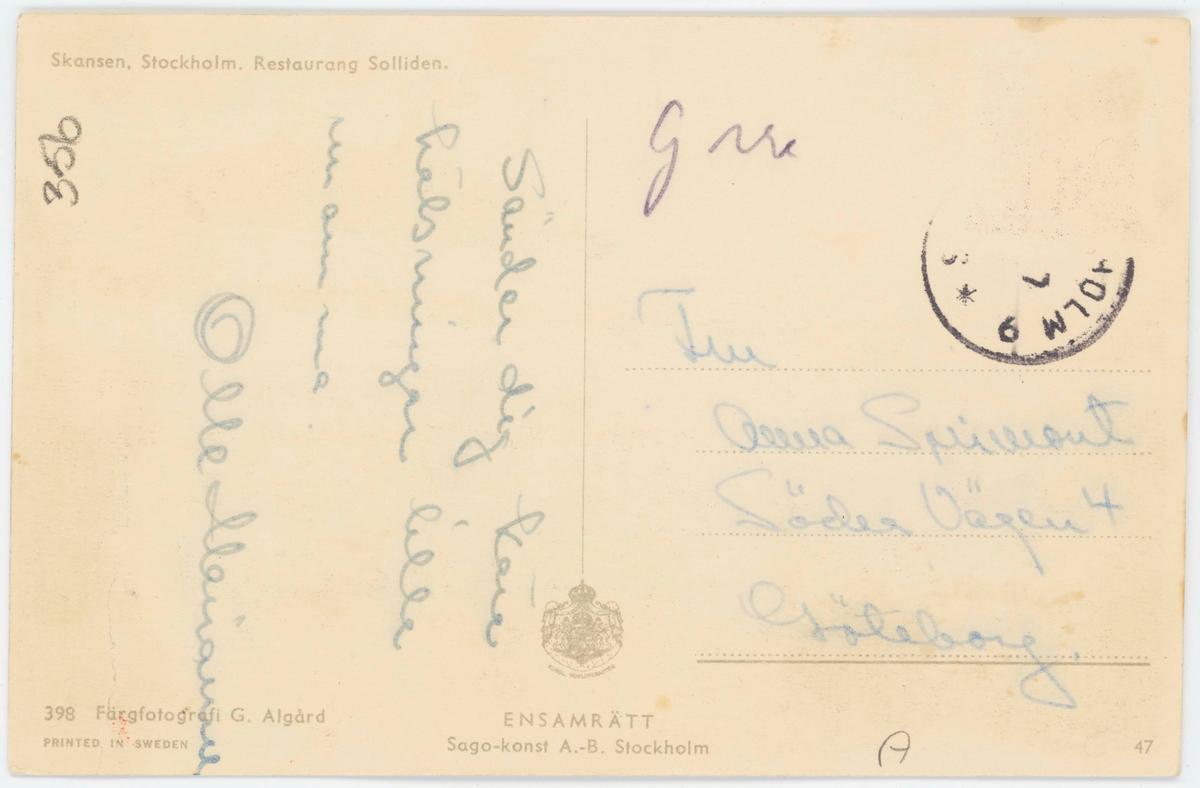 Skansen, Stockholm. Restaurang Solliden.
356
Sänder dig kära
hälsningar lilla
mamma
Olle Marianne
G
HOLM 9
7
S *
Fru
Anna Sprimont
Söder Vägen 4
Göteborg.
398 Färgfotografi G. Algård
PRINTED IN SWEDEN
ENSAMRÄTT
Sago-konst A.-B. Stockholm
A
47